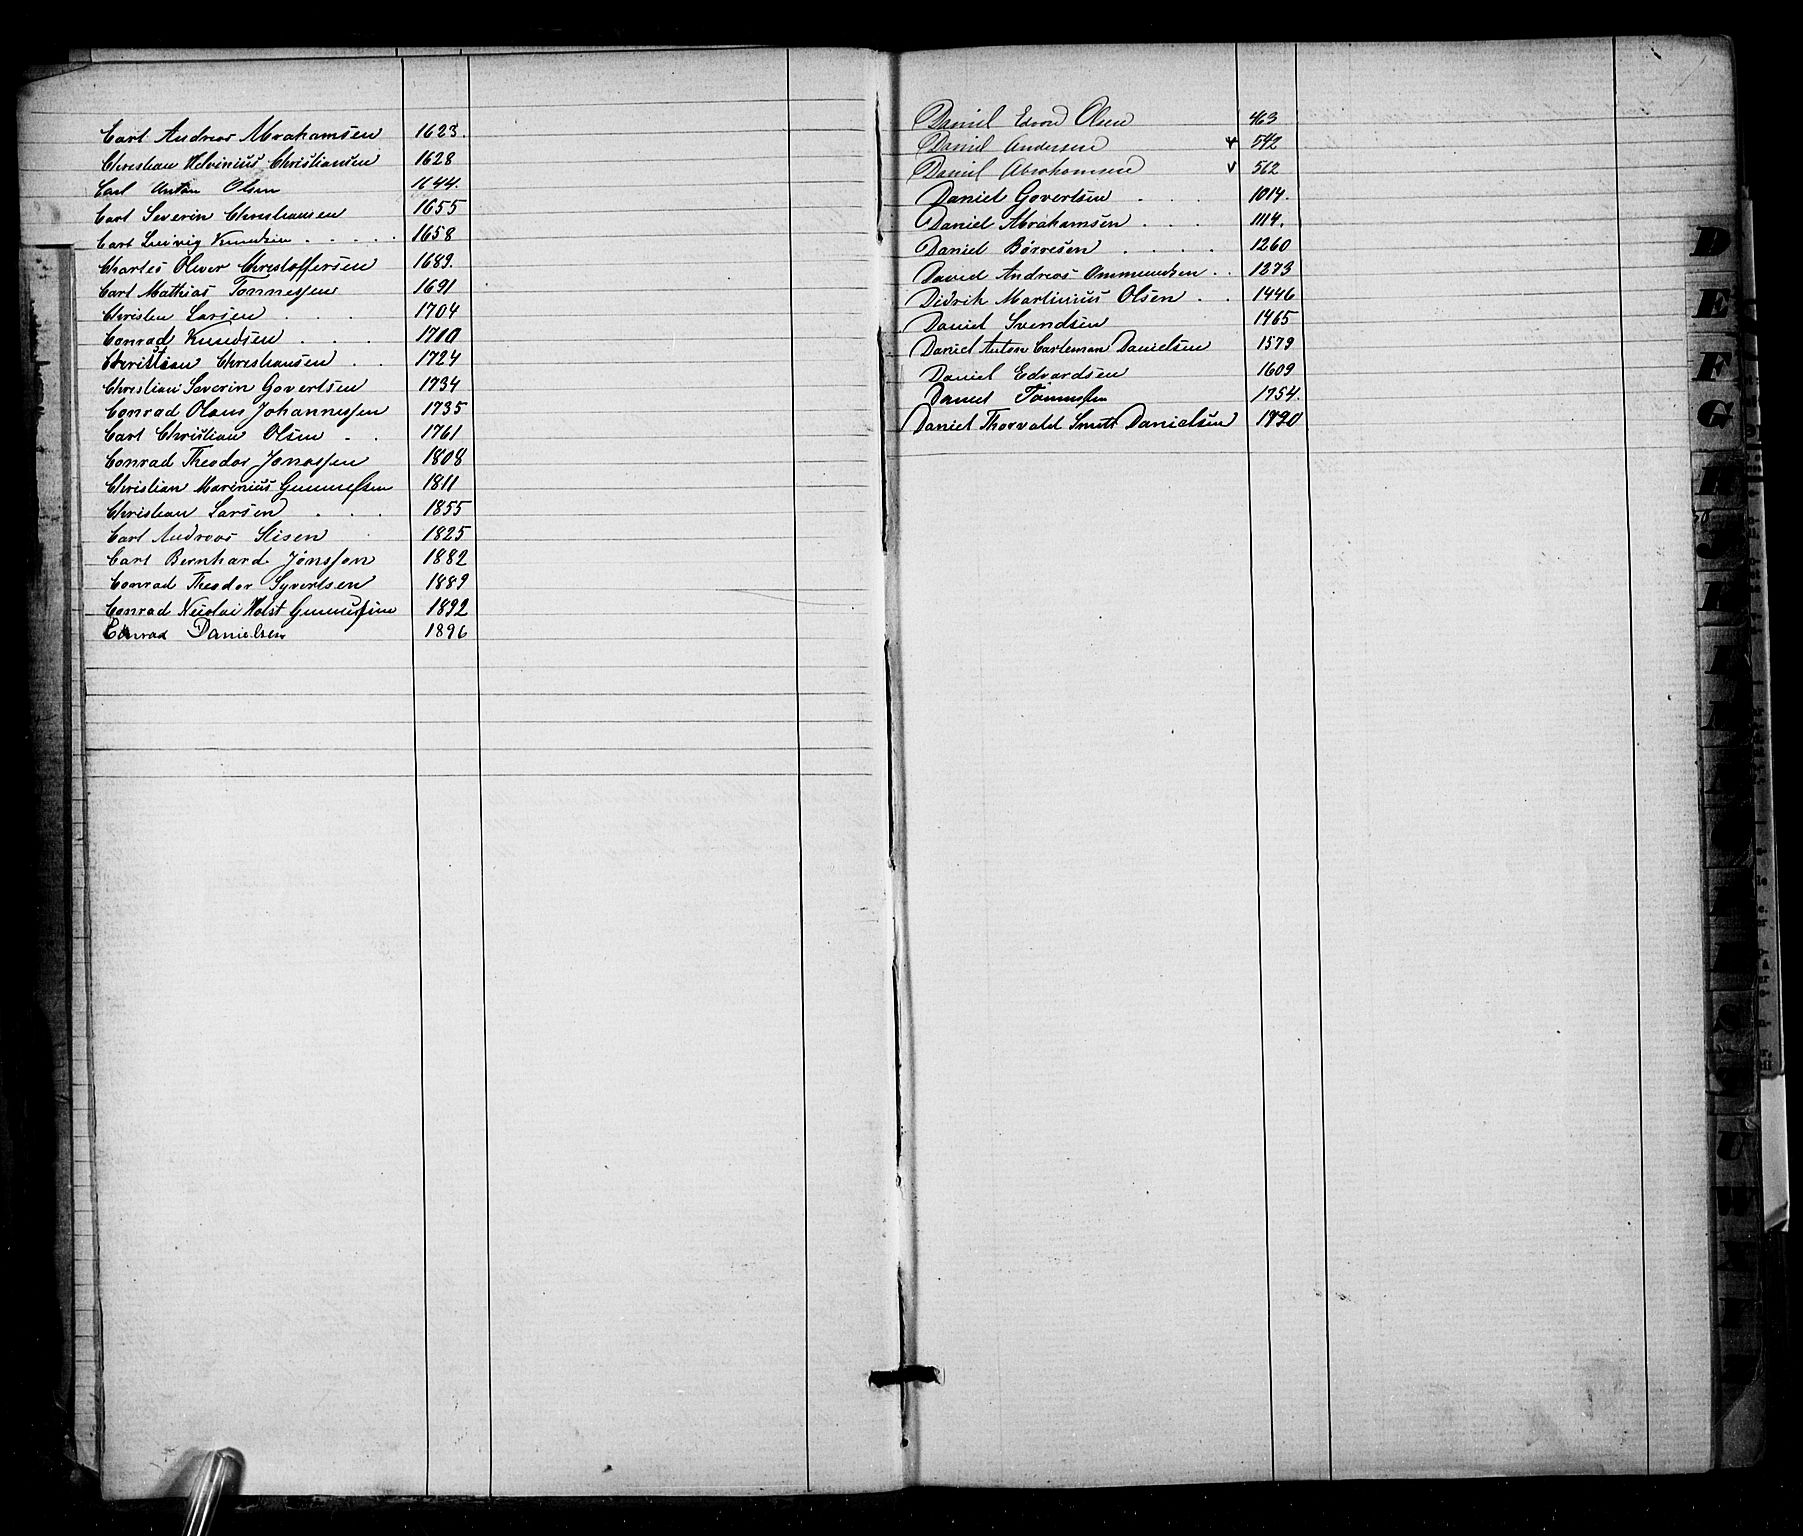 Carl Andreas Abrahamsen 1623.
Christian Helvinius Christiansen 1628
Carl Anton Olsen 1644.
Carl Severin Christiansen 1655
Carl Ludvig Knudsen . . . . . 1658
Charles Oliver Christoffersen 1689.
Carl Mathias Tønnessen 1691
Christen Larsen . . . 1704
Conrad Knudsen . . . 1710
Christian Christiansen . . 1724
Christian Severin Govertsen 1734
Conrad Olaus Johannessen 1735
Carl Christian Olsen . . 1761
Conrad Theodor Jonassen 1808
Christian Marinius Gunnufsen 1811
Christian Larsen . . . 1855
Carl Andreas . 1825
Carl Bernhard Jönsson 1882
Conrad Theodor Syvertsen 1889
Conrad Nicolai Holst Gunnufsen 1892
Conrad Danielsen 1896
Daniel Edvard Olsen 463
Daniel Andersen 542
Daniel Abrahamsen v 562
Daniel Govertsen . . . 1014.
Daniel Abrahamsen . . . 1114.
Daniel Börresen . . . . 1260
David Andreas Ommundsen . . 1273
Didrik Martinius Olsen . . 1446
Daniel Svendsen 1465
Daniel Anton Carleman Danielsen 1579
Daniel Edvardsen 1609
Daniel Tönnessen 1754.
Daniel Thorvald Smith Danielsen 1920
D
E
F
G
H
J
K
L
S
U
W